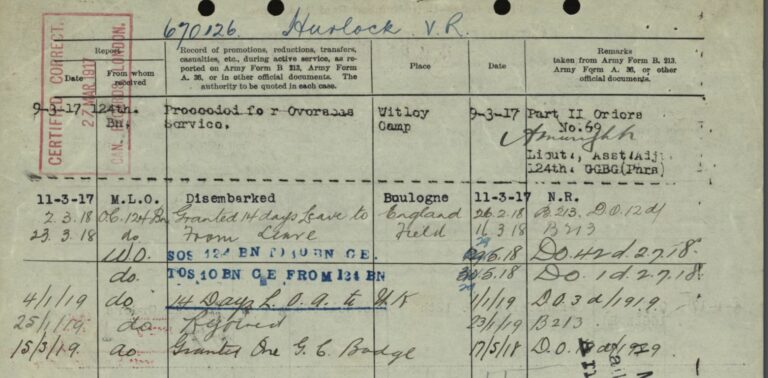 670126. Hurlock V.R.
CERTIFIED CORRECT.
27 MAR 1917
CAN. RECORDS, LONDON.
Report
Date
From whom received
Record of promotions, reductions, transfers,
casualties, etc., during active service, as
reported on Army Form B 213, Army Form
A. 36, or in other official documents. The
authority to be quoted in each case.
Place
Date
Remarks
taken from Army Form B. 213,
Army Form A. 36, or other
official documents.
9-3-17 124th. Proceeded for Overseas Witley 9-3-17 Part II Orders
Bn. Service. Camp No.69
Lieut, Asst/Adj.
124th. OCBG(Pnrs)
11-3-17 M.L.O. Disembarked Boulogne 11-3-17 N.R.
2.3.18 O.C. 124 Bn Granted 14 days Leave to England 26.2.18 B213. D.O.12 d/
23.3.18 do From Leave Field 3.18 B213
SOS 124 BN TO 10 BN C.E. 29 5.18 DO.42 d.2.7.18
do. TOS 10 BN C E FROM 124 BN 5.18 DO.1 d.2.7.18.
4/1/19 do 14 Days L.O.A. to UK 1/1/19 D.O 3 d/1919
25/1/19. do Rejoined 23/1/19 B213
15/3/19. do Granted One G.C. Badge 17/5/18 D.O. d/1919